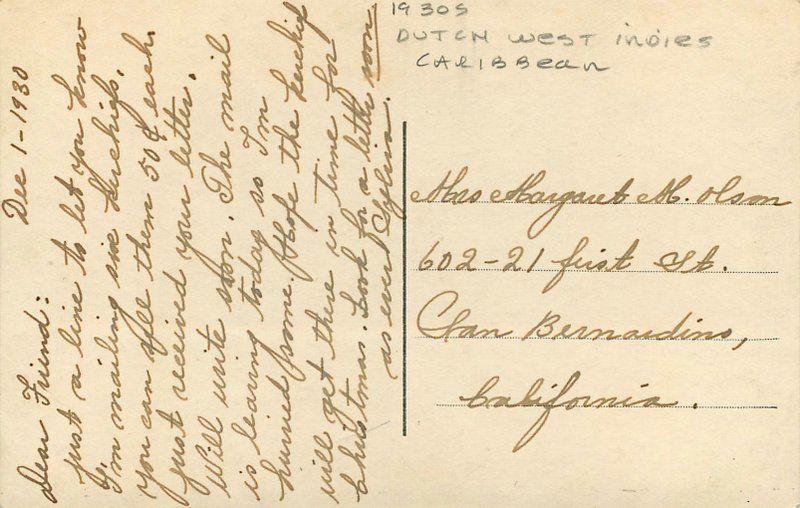 1930s
DUTCH WEST INDIES
CARIBBEAN
Dec 1-1930
Dear Friend:
just a line to let you know
I'm mailing six kerchiefs,
you can sell them 50¢ each.
just received your letter.
Will write soon. The mail
is leaving today so I'm
hurried some. Hope the kerchief
will get there in time for
Christmas. Look for a letter soon
as ever Sylvia.
Mrs Margaret M. Olson
602-21 first St.
San Bernardino,
California.